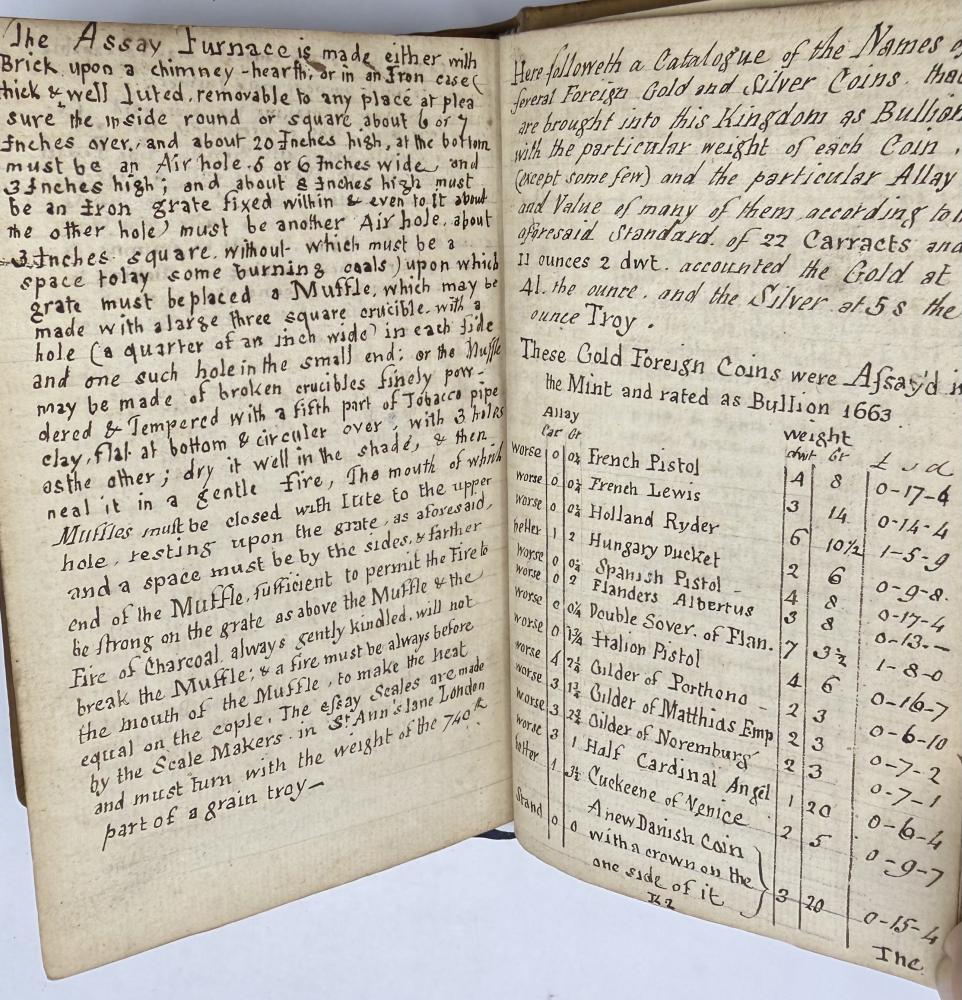 The Assay Furnace is made either with
Brick upon a chimney-hearth, or in an Iron case (
thick & well Luted, removable to any place at plea
sure the inside round or square about 6 or 7
Inches over, and about 20 Inches high, at the bottom
must be an Air hole 5 or 6 Inches wide, and
3 Inches high; and about 8 Inches high must
be an Iron grate fixed within & even to it about
the other hole) must be another Air hole, about
3 Inches square, without which must be a
space to lay some burning coals) upon which
grate must be placed a Muffle, which may be
made with a large three square crucible with a
hole (a quarter of an inch wide) in each side
and one such hole in the small end; or the Muffle
may be made of broken crucibles finely pow-
dered & Tempered with a fifth part of Tobacco pipe
clay, flat at bottom & circuler over, with 3 holes
as the other; dry it well in the shade, & then
neal it in a gentle fire, The mouth of which
Muffles must be closed with Lute to the upper
hole, resting upon the grate, as aforesaid,
and a space must be by the sides, & farther
end of the Muffle, sufficient to permit the Fire to
be strong on the grate as above the Muffle & the
Fire of Charcoal always gently kindled, will not
break the Muffle; & a fire must be always before
the mouth of the Muffle, to make the heat
equal on the cople. The essay Scales are made
by the Scale Makers in St Ann's lane London
and must turn with the weight of the 740th
part of a grain troy—
Here followeth a Catalogue of the Names of
several Foreign Gold and Silver Coins that
are brought into this Kingdom as Bullion
with the particular weight of each Coin,
(except some few) and the particular Allay
and Value of many of them according to
aforesaid Standard of 22 Carracts and
11 ounces 2 dwt. accounted the Gold at
4l. the ounce, and the Silver at 5s the
ounce Troy.
These Gold Foreign Coins were Assay'd in
the Mint and rated as Bullion 1663
Allay weight
Car Gr dwt Gr £ s d
worse 0 0½ French Pistol 4 8 0-17-4
worse 0 0½ French Lewis 3 14 0-14-4
worse 0 0½ Holland Ryder 6 10½ 1-5-9
better 1 2 Hungary Ducket 2 6 0-9-8
worse 0 0½ Spanish Pistol 4 8 0-17-4
worse 0 2 Flanders Albertus 3 8 0-13-
worse 0 0¼ Double Sover. of Flan. 7 3½ 1-8-0
worse 0 1¾ Italion Pistol 4 6 0-16-7
worse 4 2¼ Gilder of Porthono 2 3 0-6-10
worse 3 1½ Gilder of Matthias Emp 2 3 0-7-2
worse 3 2¾ Gilder of Noremburg 2 3 0-7-1
worse 3 1 Half Cardinal Angel 1 20 0-6-4
better 1 3½ Cuckeene of Venice 2 5 0-9-7
Stand 0 0 A new Danish Coin
with a crown on the
one side of it 3 20 0-15-4
The